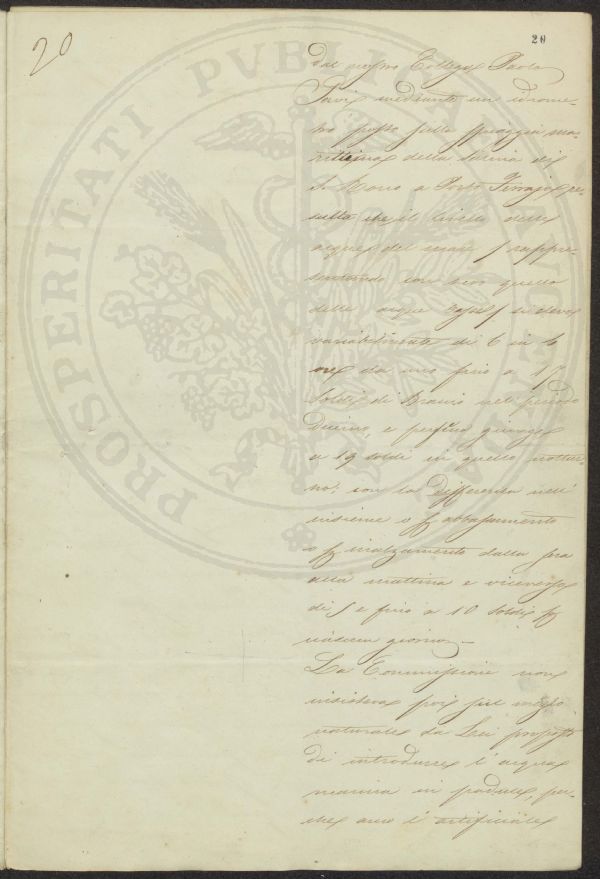 20
20
Dal nostro Collega Paolo
Savi mediante un idrome-
tro posto sulla spiaggia ma-
rittima della Marina di
S. Rocco a Porto Ferrajo re-
sulta che il livello delle
acque del mare / rappre-
sentando con zero quello
delle acque basse / si eleva
variabilmente di 6 in 6
ore da uno fino a 17
Soldi di Braccio nel periodo
Diurno, e perfino giunge
a 19 soldi in quello nottur-
no; con la differenza nell'
insieme o p abbassamento
o p inalzamento dalla sera
alla mattina e viceversa
di 5 e fino a 10 Soldi p
ciascun giorno.—
La Commissione non
insisteva poi sul modo
naturale da Lei proposto
di introdurre l'acqua
marina in padule, per-
che anco l'artificiale
PROSPERITATI PVBLICAE AVGENDAE